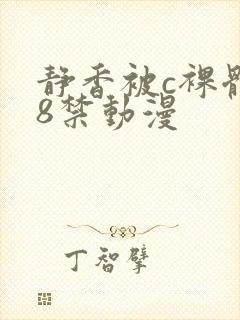 静香被c裸
8禁動漫
丁智擘